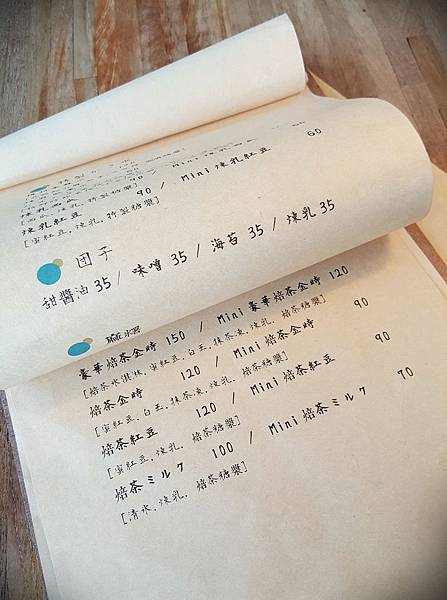 煉乳紅豆 90 / Mini 煉乳紅豆 60
[蜜紅豆, 煉乳, 特製糖漿]
団子
甜醬油 35 / 味噌 35 / 海苔 35 / 煉乳 35
豪華焙茶金時 150 / Mini 豪華焙茶金時 120
[焙茶冰淇淋, 蜜紅豆, 白玉, 抹茶凍, 煉乳, 焙茶糖漿]
焙茶金時 120 / Mini 焙茶金時 90
[蜜紅豆, 白玉, 抹茶凍, 煉乳, 焙茶糖漿]
焙茶紅豆 120 / Mini 焙茶紅豆 90
[蜜紅豆, 煉乳, 焙茶糖漿]
焙茶ミルク 100 / Mini 焙茶ミルク 70
[清水, 煉乳, 焙茶糖漿]